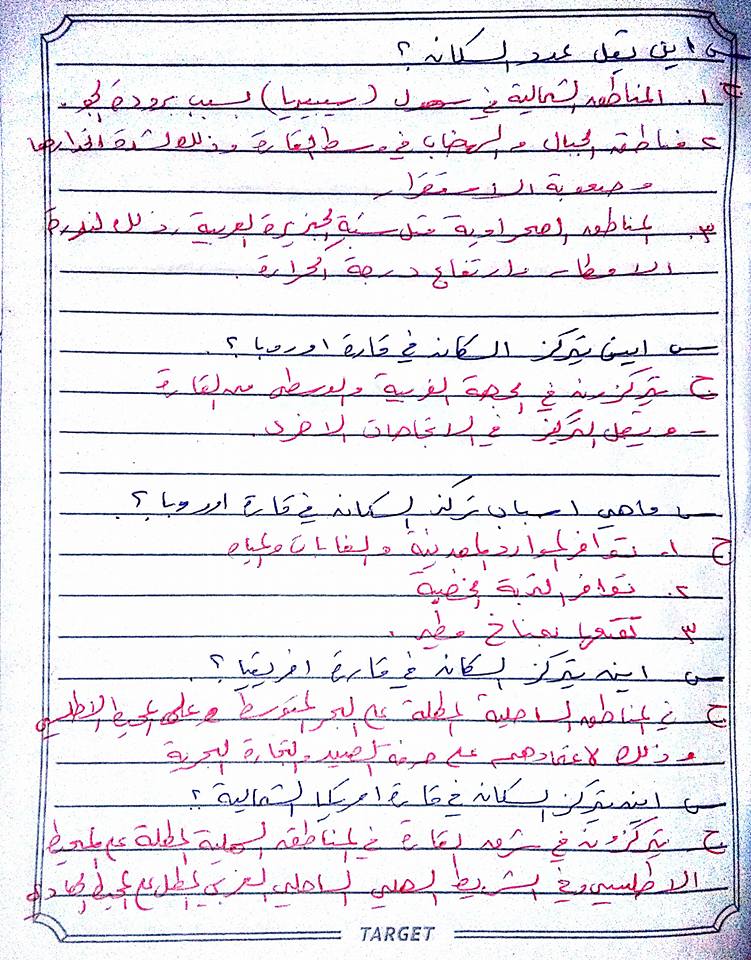 س/ اين يقل عدد السكان ؟
ج ١. المناطق الشمالية في سهول (سيبيريا) بسبب برودة الجو.
٢. مناطق الجبال والهضاب في وسط القارة وذلك لشدة انحدارها
وصعوبة الاستقرار
٣. المناطق الصحراوية مثل شبه الجزيرة العربية وذلك لندرة
الامطار وارتفاع درجة الحرارة.
س/ اين يتركز السكان في قارة اوروبا ؟
ج/ يتركزون في الجهة الغربية والوسطى من القارة
- ويقل التركيز في الاتجاهات الاخرى.
س/ ماهي اسباب تركز السكان في قارة اوروبا ؟
ج ١. توافر الموارد المعدنية والغابات والمياه
٢. توافر التربة الخصبة
٣. تمتعها بمناخ مطير.
س/ اين يتركز السكان في قارة افريقيا ؟
ج/ في المناطق الساحلية المطلة على البحر المتوسط وعلى المحيط الاطلسي
وذلك لاعتمادهم على حرفة الصيد والتجارة البحرية
س/ اين يتركز السكان في قارة امريكا الشمالية ؟
ج/ يتركزون في شرق القارة في المناطق السهلية المطلة على المحيط
الاطلسي وفي الشريط السهلي الساحلي الغربي المطل على المحيط الهادي
TARGET